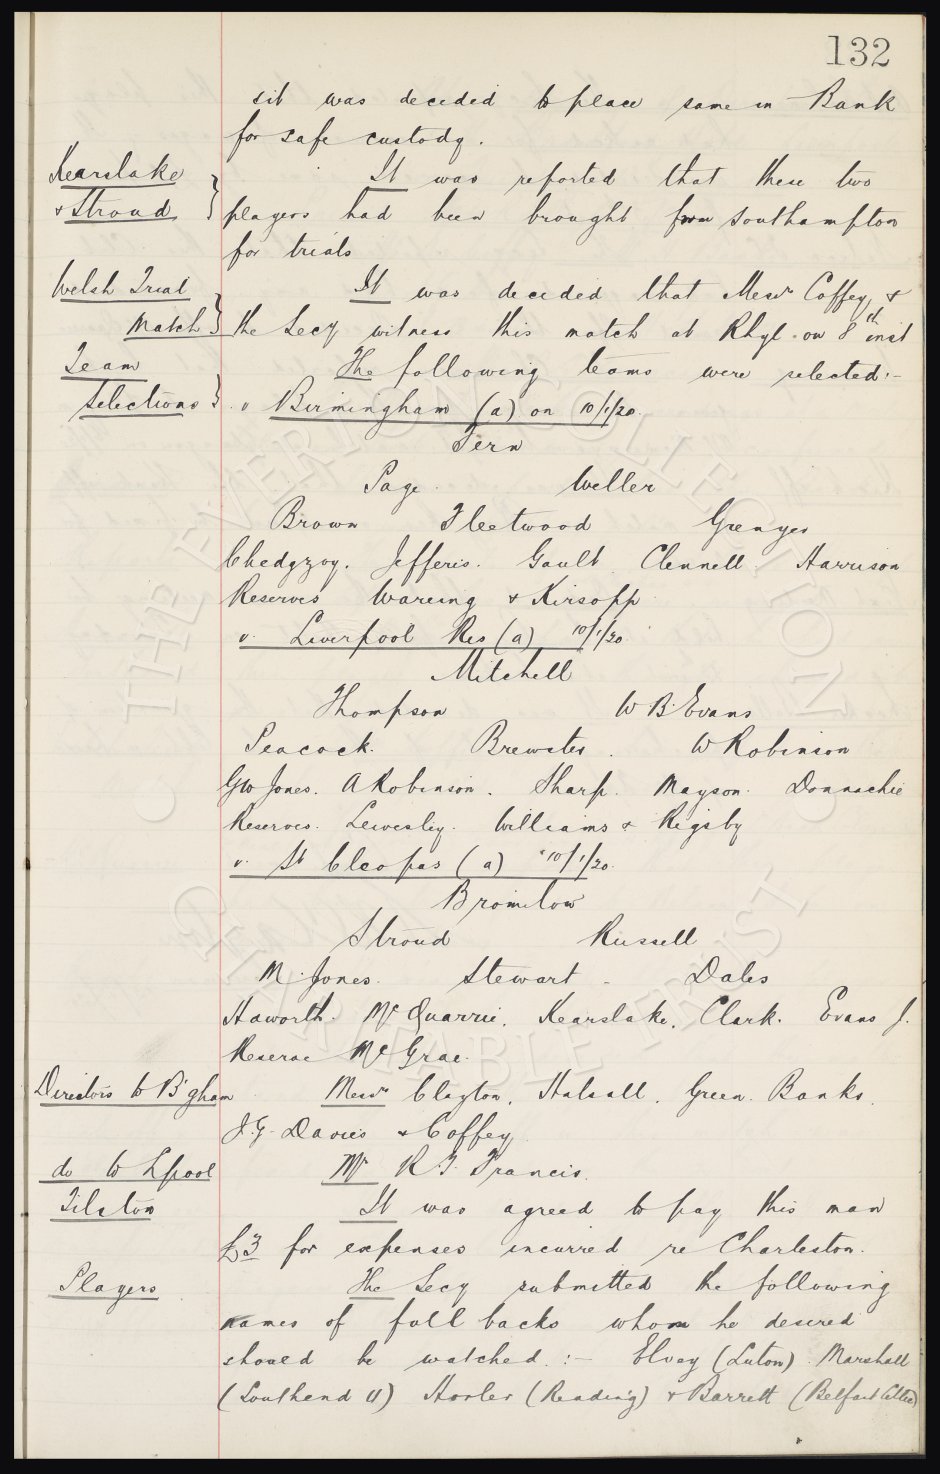 132
sit was decided to place same in Bank
for safe custody.
Kearslake
& Stroud
It was reported that these two
players had been brought from Southampton
for trials
Welsh Trial
Match
It was decided that Messrs Coffey &
the Secy witness this match at Rhyl on 8th inst
Team
Selections
The following teams were selected:-
v Birmingham (a) on 10/1/20.
Fern
Page. Weller
Brown Fleetwood Grenyer
Chedgzoy. Jefferis. Gault Clennell Harrison
Reserves Wareing & Kirsopp
v. Liverpool Res (a) 10/1/20.
Mitchell
Thompson W B. Evans
Peacock. Brewster. W Robinson
GW Jones. A Robinson. Sharp. Mayson. Donnachie
Reserves. Lewesley. Williams & Rigsby
v. St Cleopas (a) 10/1/20.
Bromilow
Stroud Russell
M. Jones. Stewart. Dales
Haworth. McQuarrie. Kearslake. Clark. Evans J.
Reserve McGrae.
Directors to B'gham
Messrs Clayton, Halsall, Green. Banks.
J.G. Davies & Coffey.
do to Lpool
Mr R.T. Francis.
Tilston
It was agreed to pay this man
£3 for expenses incurred re Charleston.
Players
The Secy submitted the following
names of full backs whom he desired
should be watched :- Elvey (Luton). Marshall
(Southend U) Horler (Reading) & Barrett (Belfast Celtic)
THE EVERTON COLLECTION
CHARITABLE TRUST